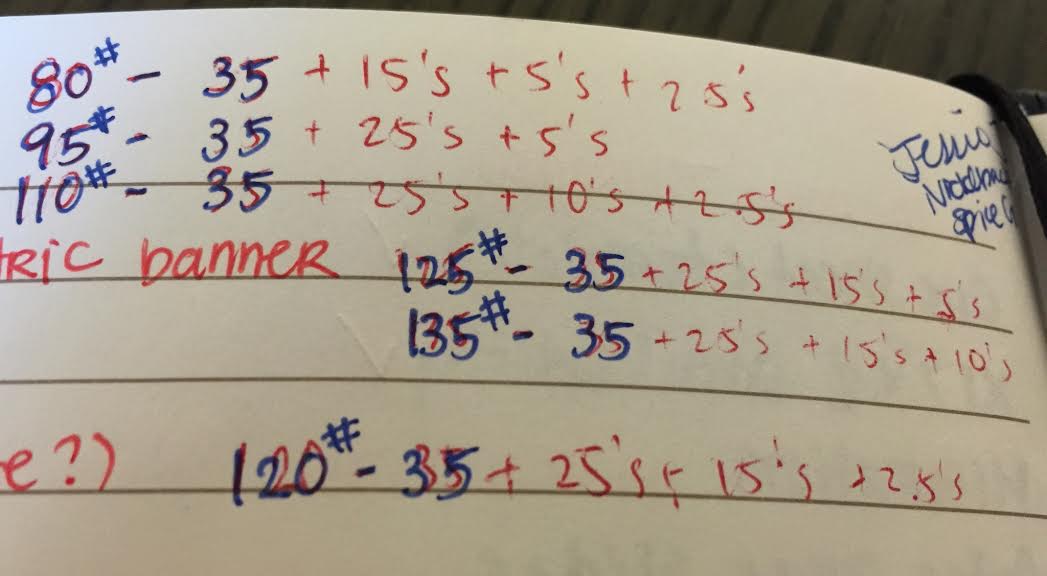 80# - 35 + 15's + 5's + 25's
95# - 35 + 25's + 5's
110# - 35 + 25's + 10's + 2.5's
Spice
RIC banner 125# - 35 + 25's + 15's + 5's
135# - 35 + 25's + 15's + 10's
e?) 120# - 35 + 25's + 15's + 2.5's